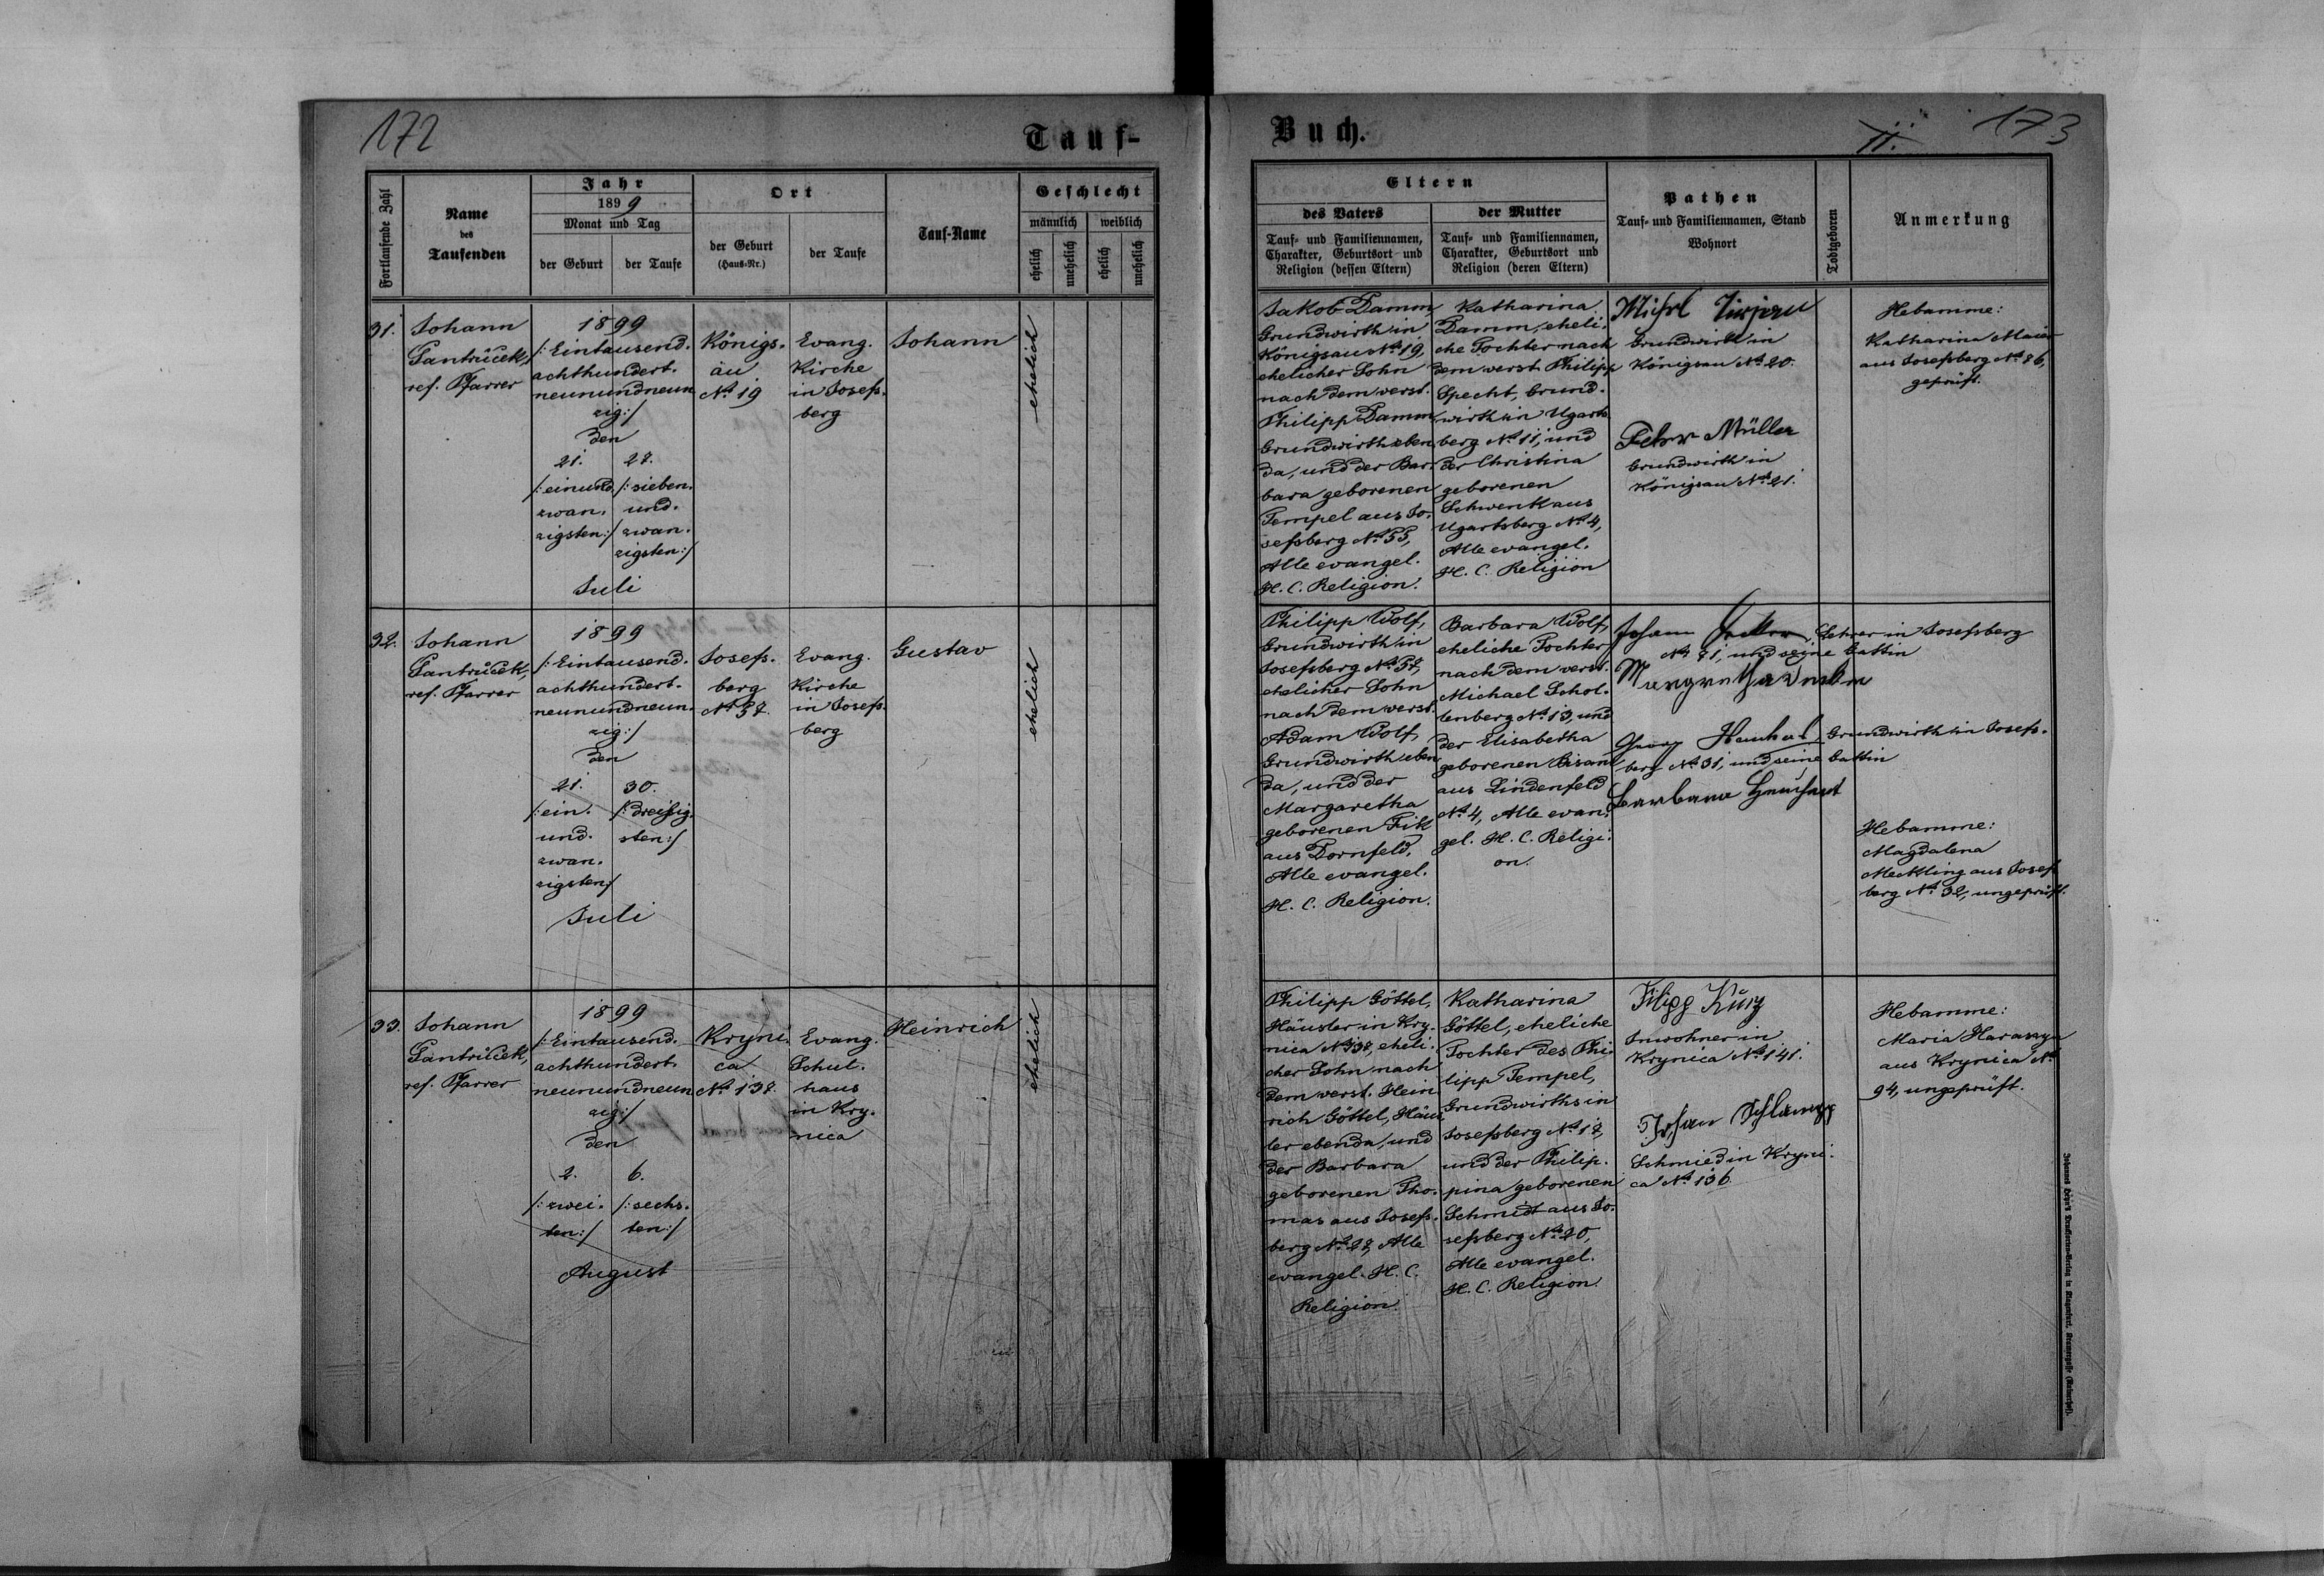 172
Tauf-
Fortlaufende Zahl
Name
des
Taufenden
Jahr
1899
Monat und Tag
der Geburt
der Taufe
Ort
der Geburt
(Haus-Nr.)
der Taufe
Tauf-Name
Geschlecht
männlich
weiblich
ehelich
unehelich
ehelich
unehelich
31.
Johann
ref. Pfarrer
1899
/:Eintausend.
achthundert.
neunundneun
zig:/
den
21.
/:einund.
zwan.
zigsten:/
27.
/:sieben.
und.
zwan.
zigsten:/
Juli
Königs.
au
No 19
Evang.
Kirche
in Josefs.
berg
Johann
ehelich
32.
Johann
ref. Pfarrer
1899
/:Eintausend.
achthundert.
neunundneun.
zig:/
den
21.
/:ein.
und.
zwan.
zigsten:/
30.
/:dreißig.
sten:/
Juli
Josefs.
berg
No 57.
Evang.
Kirche
in Josefs.
berg
Gustav
ehelich
33.
Johann
ref. Pfarrer
1899
/:Eintausend.
achthundert.
neunundneun
zig:/
den
2.
/:zwei.
ten:/
6.
/:sechs.
ten:/
August
Kryni.
ca
No 138.
Evang.
Schul.
haus
in Kry.
nica
Heinrich
ehelich
Buch.
II.
173
Eltern
des Vaters
Tauf- und Familiennamen,
Charakter, Geburtsort und
Religion (dessen Eltern)
der Mutter
Tauf- und Familiennamen,
Charakter, Geburtsort und
Religion (deren Eltern)
Pathen
Tauf- und Familiennamen, Stand
Wohnort
Todtgeboren
Anmerkung
Jakob Damm
Grundwirth in
Königsau No 19,
ehelicher Sohn
nach dem verst.
Philipp Damm
Grundwirth eben
da, und der Bar.
bara geborenen
Tempel aus Jo.
sefsberg No 55,
Alle evangel.
H. C. Religion.
Katharina
Damm, eheli.
che Tochter nach
dem verst. Philipp
Specht, Grund.
wirth in Ugarts
berg No 11, und
der Christina
geborenen
Schwenk aus
Ugartsberg No 4,
Alle evangel.
H. C. Religion
Michel
Grundwirth in
Königsau No 20.
Peter Müller
Grundwirth in
Königsau No 21.
Hebamme:
Katharina Maier
aus Josefsberg No 86,
geprüft.
Philipp Wolf,
Grundwirth in
Josefsberg No 57,
ehelicher Sohn
nach dem verst.
Adam Wolf,
Grundwirth eben
da, und der
Margaretha
geborenen Fik
aus Dornfeld.
Alle evangel.
H. C. Religion.
Barbara Wolf,
eheliche Tochter
nach dem verst.
Michael Schol.
lenberg No 13, und
der Elisabetha
geborenen Bisanz
aus Lindenfeld
No 4, Alle evan.
gel. H. C. Religi.
on.
Johann Lehrer in Josefsberg
No 71, und seine Gattin
Margretha
Georg Grundwirth in Josefs.
berg No 31, und seine Gattin
Barbara
Hebamme:
Magdalena
Meckling aus Josefs
berg No 32, ungeprüft.
Philipp Göttel,
Häusler in Kry.
nica No 138, eheli.
cher Sohn nach
dem verst. Hein
rich Göttel, Häus
ler ebenda, und
der Barbara
geborenen Tho.
mas aus Josefs.
berg No 27, Alle
evangel. H. C.
Religion.
Katharina
Göttel, eheliche
Tochter des Phi
lipp Tempel,
Grundwirths in
Josefsberg No 17,
und der Philip.
pina geborenen
Schmidt aus Jo.
sefsberg No 20,
Alle evangel.
H. C. Religion
Filipp Kurz
Inwohner in
Krynica No 141.
Johan Schlamp
Schmied in Kryni.
ca No 136
Hebamme:
Maria
aus Krynica No
94, ungeprüft.